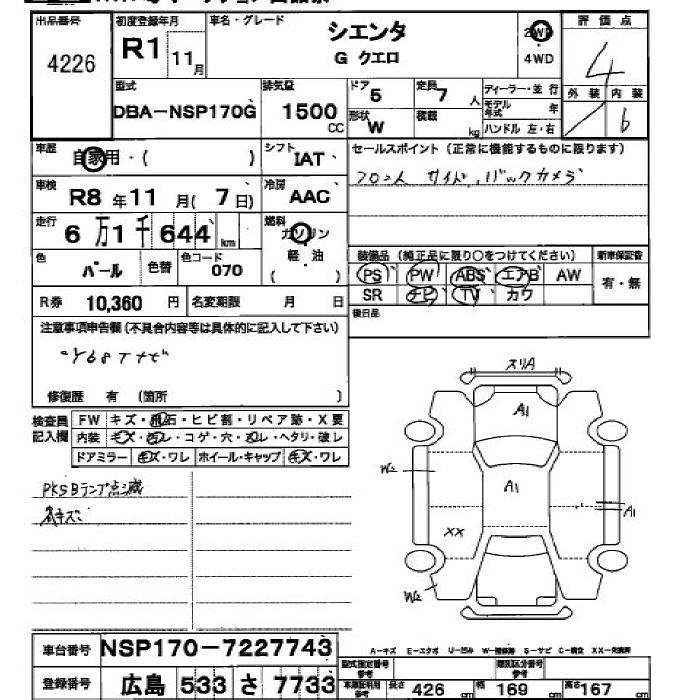 出品番号 初度登録年月 車名・グレード 評価点
4226 R1 11月 シエンタ G クエロ 2WD 4WD 4
型式 排気量 ドア 定員 ディーラー・並行 外装 内装
DBA-NSP170G 1500 CC 5 7人 モデル年式 年 b
形状 W 積載 kg ハンドル 左・右
車歴 自家用・( ) シフト IAT
セールスポイント(正常に機能するものに限ります)
車検 R8年11月(7日) 冷房 AAC
フロント サイド、バックカメラ
走行 6万1千644km 燃料 ガソリン 軽・油 ( )
色 パール 色替 色コード 070
装備品(純正品に限り○をつけてください) 新車保証書
PS PW ABS エアB AW 有・無
SR ナビ TV カワ
R券 10,360円 名変期限 月 日
後日品
注意事項申告欄(不具合内容等は具体的に記入して下さい)
修復歴 有 (箇所 )
検査員記入欄 FW キズ・飛石・ヒビ割・リペア跡・X要
内装 キズ・汚レ・コゲ・穴・ヌレ・ヘタリ・破レ
ドアミラー キズ・ワレ ホイール・キャップ キズ・ワレ
PKSBランプ点滅
各キズ
スリA
A1
W2
A1
A1
XX
W2
A-キズ E-エクボ U-凹み W-補修跡 S-サビ C-腐食 XX-交換済
車台番号 NSP170-7227743
型式指定番号 参考 類別区分番号 参考
登録番号 広島 533 さ 7733
車検証利用 参考 長さ 426 cm 幅 169 cm 高さ 167 cm